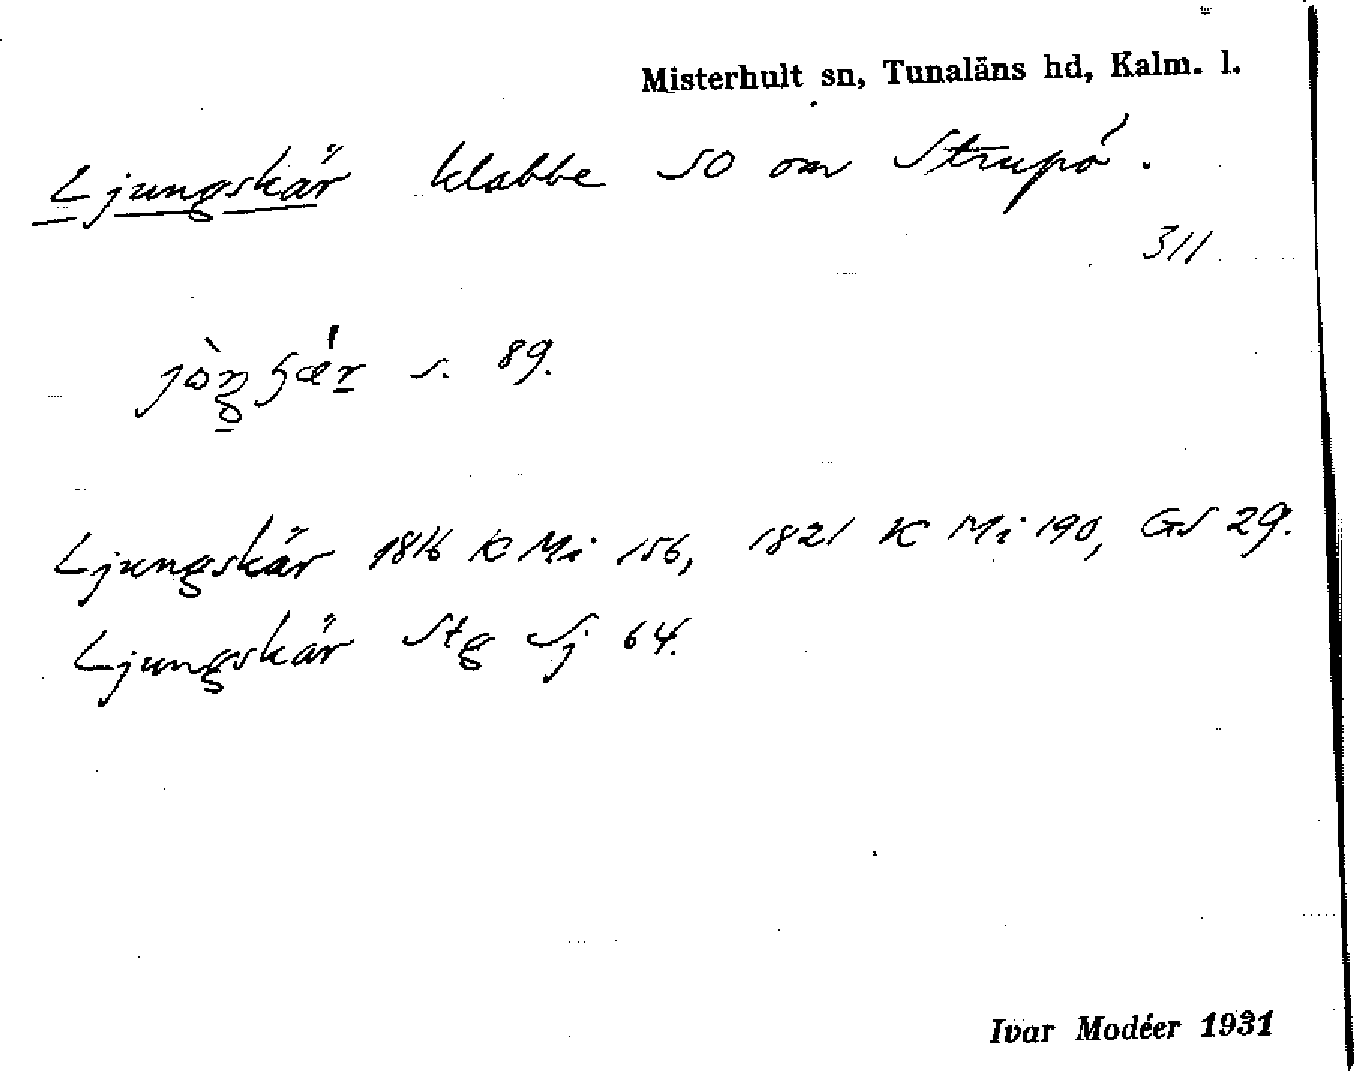 Misterhult sn, Tunaläns hd, Kalm. l.
Ljungskär klabbe SO om Strupö.
311
s. 89.
Ljungskär 1816 K Mi 156, 1821 K Mi 190, GS 29.
Ljungskär Stg Sj 64.
Ivar Modéer 1931